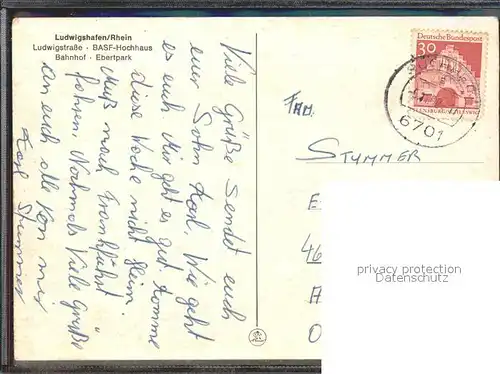 Ludwigshafen/Rhein
Ludwigstraße · BASF-Hochhaus
Bahnhof · Ebertpark
Viele Grüße Sendet euch
eur Sohn Karl. Wie geht
es euch. Mir geht es gut. Komme
diese Woche nicht Heim.
Muß nach Frankfurt
fahren. Nochmals Viele Grüße
an euch alle von mir
Karl Stummer
Deutsche Bundespost
30
FLENSBURG/SCHLESWIG
6701
FAM.
STUMMER
46
privacy protection
Datenschutz